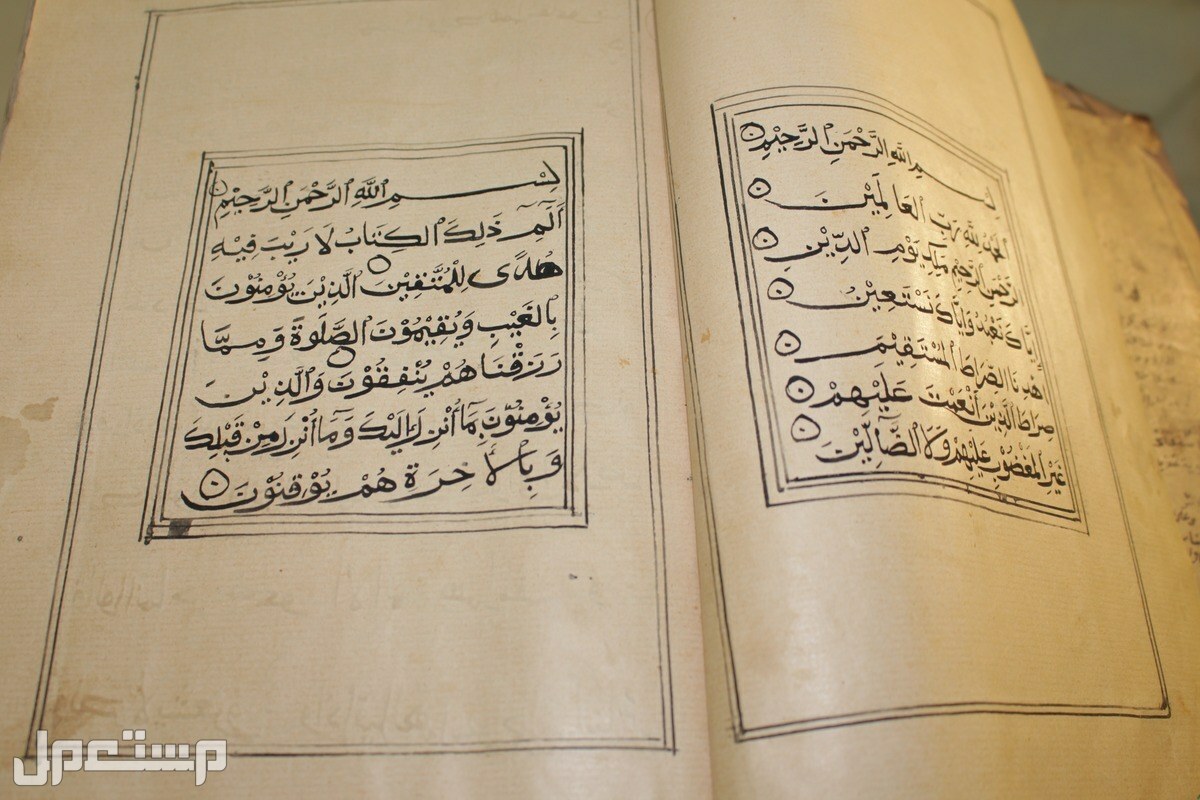 بِسْمِ اللّٰهِ الرَّحْمٰنِ الرَّحِيْمِ
اَلْحَمْدُ لِلّٰهِ رَبِّ الْعَالَمِيْنَ
الرَّحْمٰنِ الرَّحِيْمِ مٰلِكِ يَوْمِ الدِّيْنِ
إِيَّاكَ نَعْبُدُ وَإِيَّاكَ نَسْتَعِيْنُ
اهْدِنَا الصِّرَاطَ الْمُسْتَقِيْمَ
صِرَاطَ الَّذِيْنَ أَنْعَمْتَ عَلَيْهِمْ
غَيْرِ الْمَغْضُوْبِ عَلَيْهِمْ وَلَا الضَّالِّيْنَ
بِسْمِ اللّٰهِ الرَّحْمٰنِ الرَّحِيْمِ
الٓمٓ ذٰلِكَ الْكِتَابُ لَا رَيْبَ فِيْهِ
هُدًى لِلْمُتَّقِيْنَ الَّذِيْنَ يُؤْمِنُوْنَ
بِالْغَيْبِ وَيُقِيْمُوْنَ الصَّلٰوةَ وَمِمَّا
رَزَقْنَاهُمْ يُنْفِقُوْنَ وَالَّذِيْنَ
يُؤْمِنُوْنَ بِمَآ أُنْزِلَ إِلَيْكَ وَمَآ أُنْزِلَ مِنْ قَبْلِكَ
وَبِالْاٰخِرَةِ هُمْ يُوْقِنُوْنَ
مستعمل